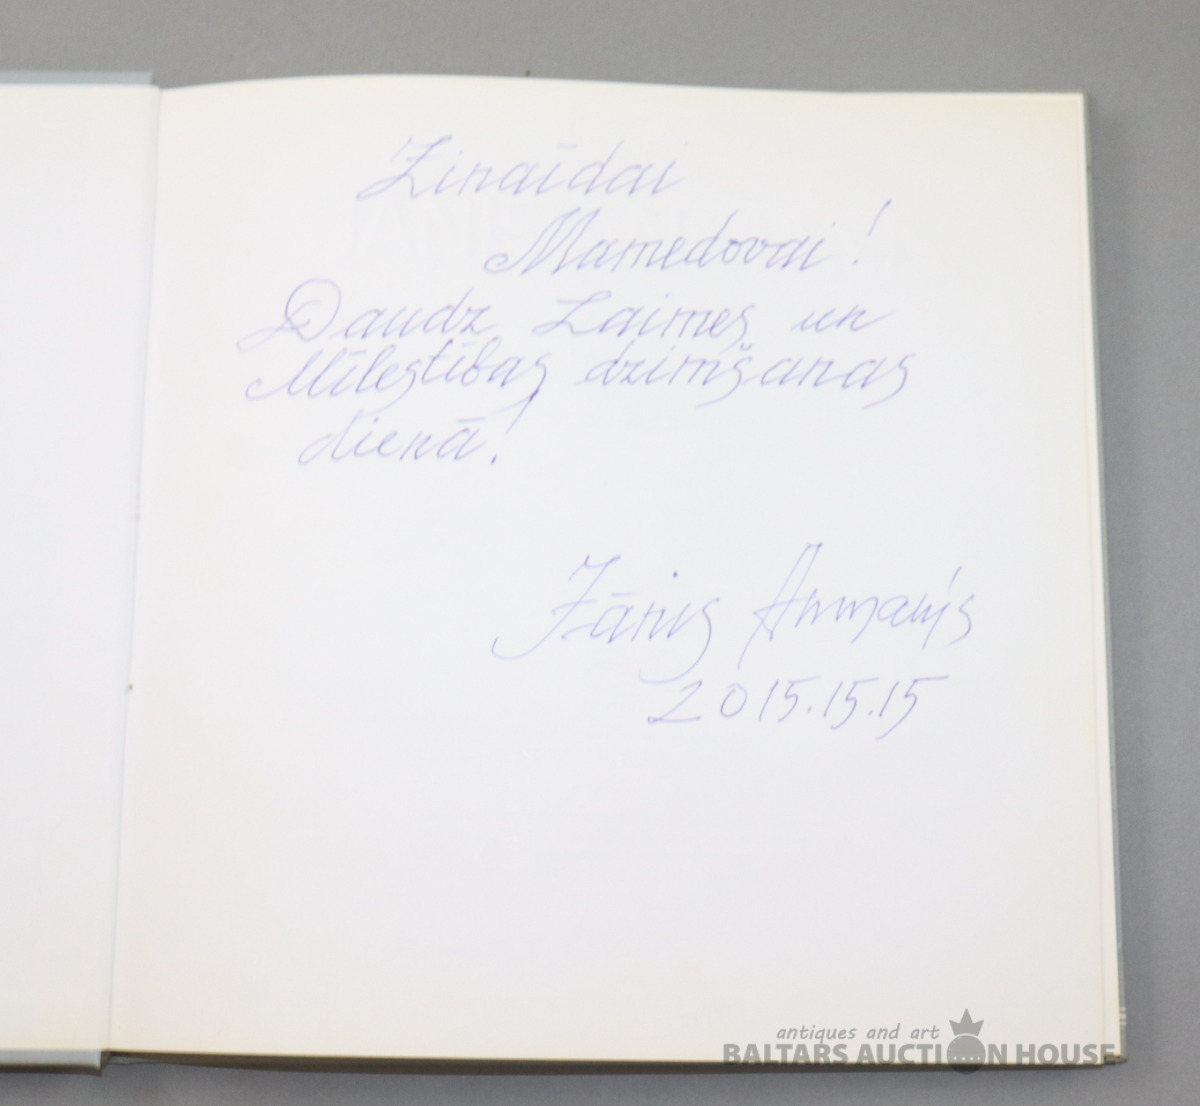 Zinaīdai
Mamedovai!
Daudz Laimes un
Mīlestības dzimšanas
dienā!
Jānis Anmanis
2015.15.15
antiques and art
BALTARS AUCTION HOUSE